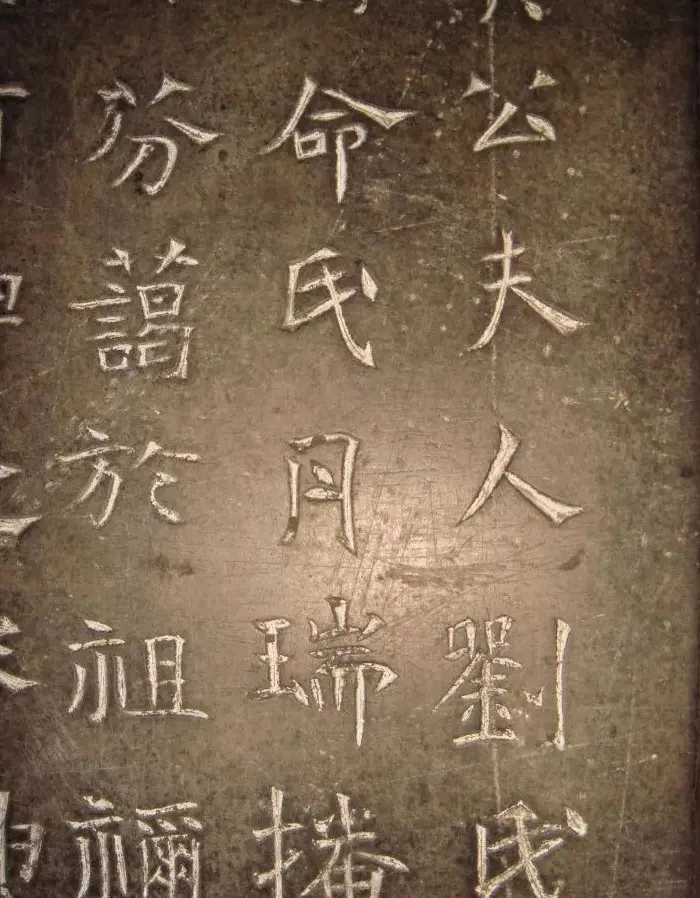 公夫人劉氏
命氏月瑞播
芬藹於祖禰